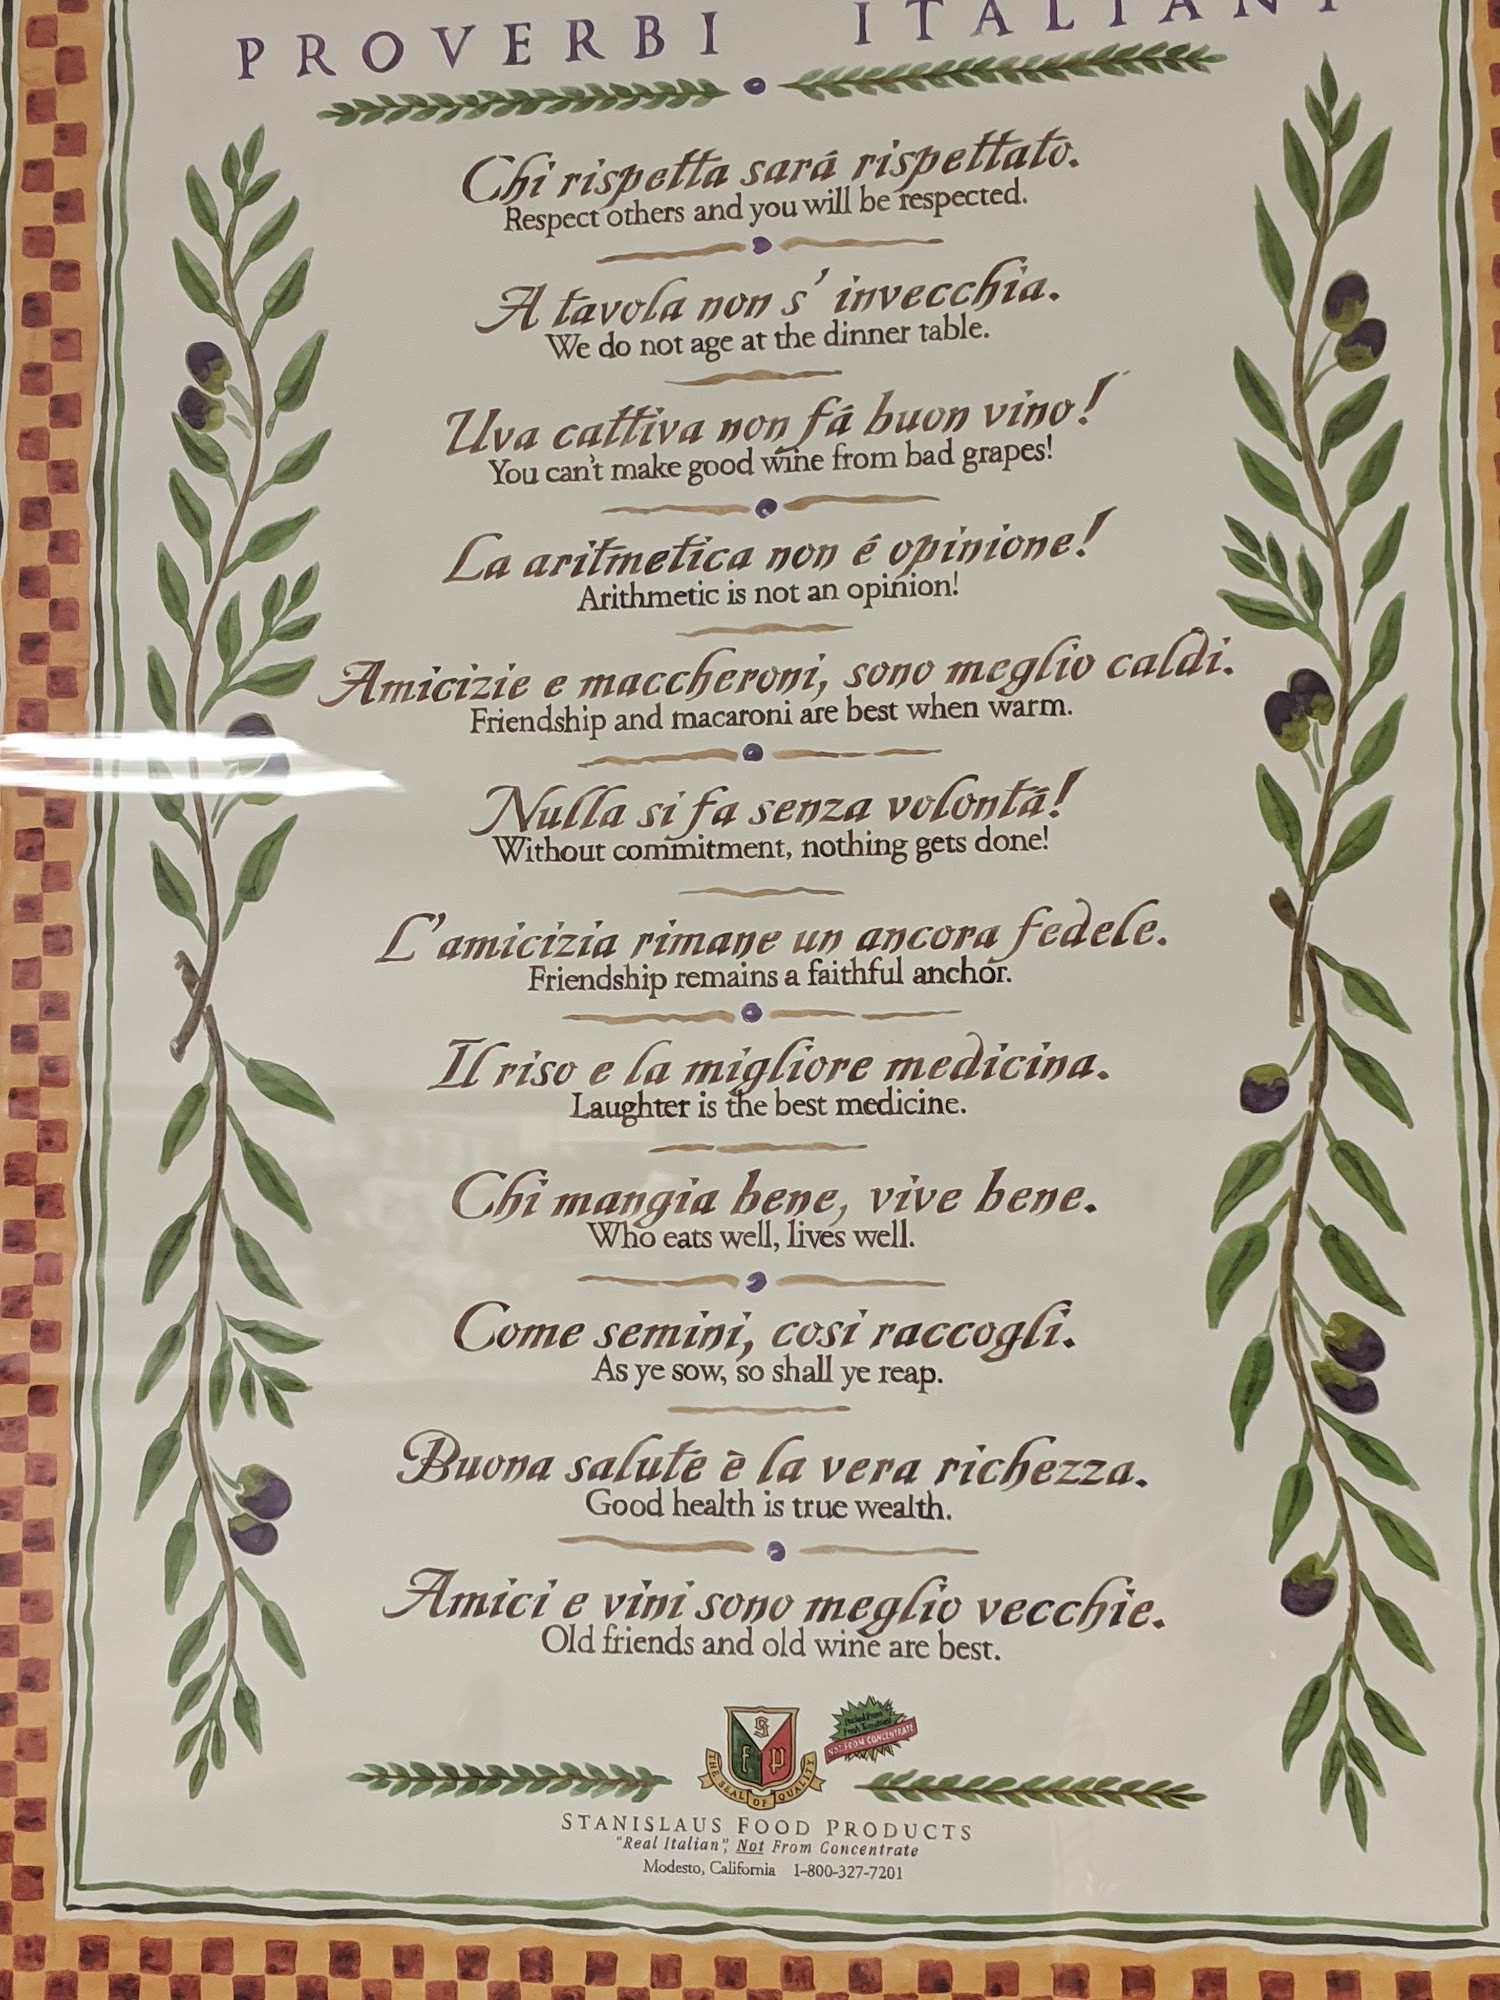 PROVERBI ITALIANI
Chi rispetta sará rispettato.
Respect others and you will be respected.
A tavola non s' invecchia.
We do not age at the dinner table.
Uva cattiva non fá buon vino!
You can't make good wine from bad grapes!
La aritmetica non é opinione!
Arithmetic is not an opinion!
Amicizie e maccheroni, sono meglio caldi.
Friendship and macaroni are best when warm.
Nulla si fa senza volontá!
Without commitment, nothing gets done!
L'amicizia rimane un ancora fedele.
Friendship remains a faithful anchor.
Il riso e la migliore medicina.
Laughter is the best medicine.
Chi mangia bene, vive bene.
Who eats well, lives well.
Come semini, cosi raccogli.
As ye sow, so shall ye reap.
Buona salute è la vera richezza.
Good health is true wealth.
Amici e vini sono meglio vecchie.
Old friends and old wine are best.
S
f p
THE SEAL OF QUALITY
Packed From
Fresh Tomatoes
NOT FROM CONCENTRATE
STANISLAUS FOOD PRODUCTS
"Real Italian", Not From Concentrate
Modesto, California 1-800-327-7201